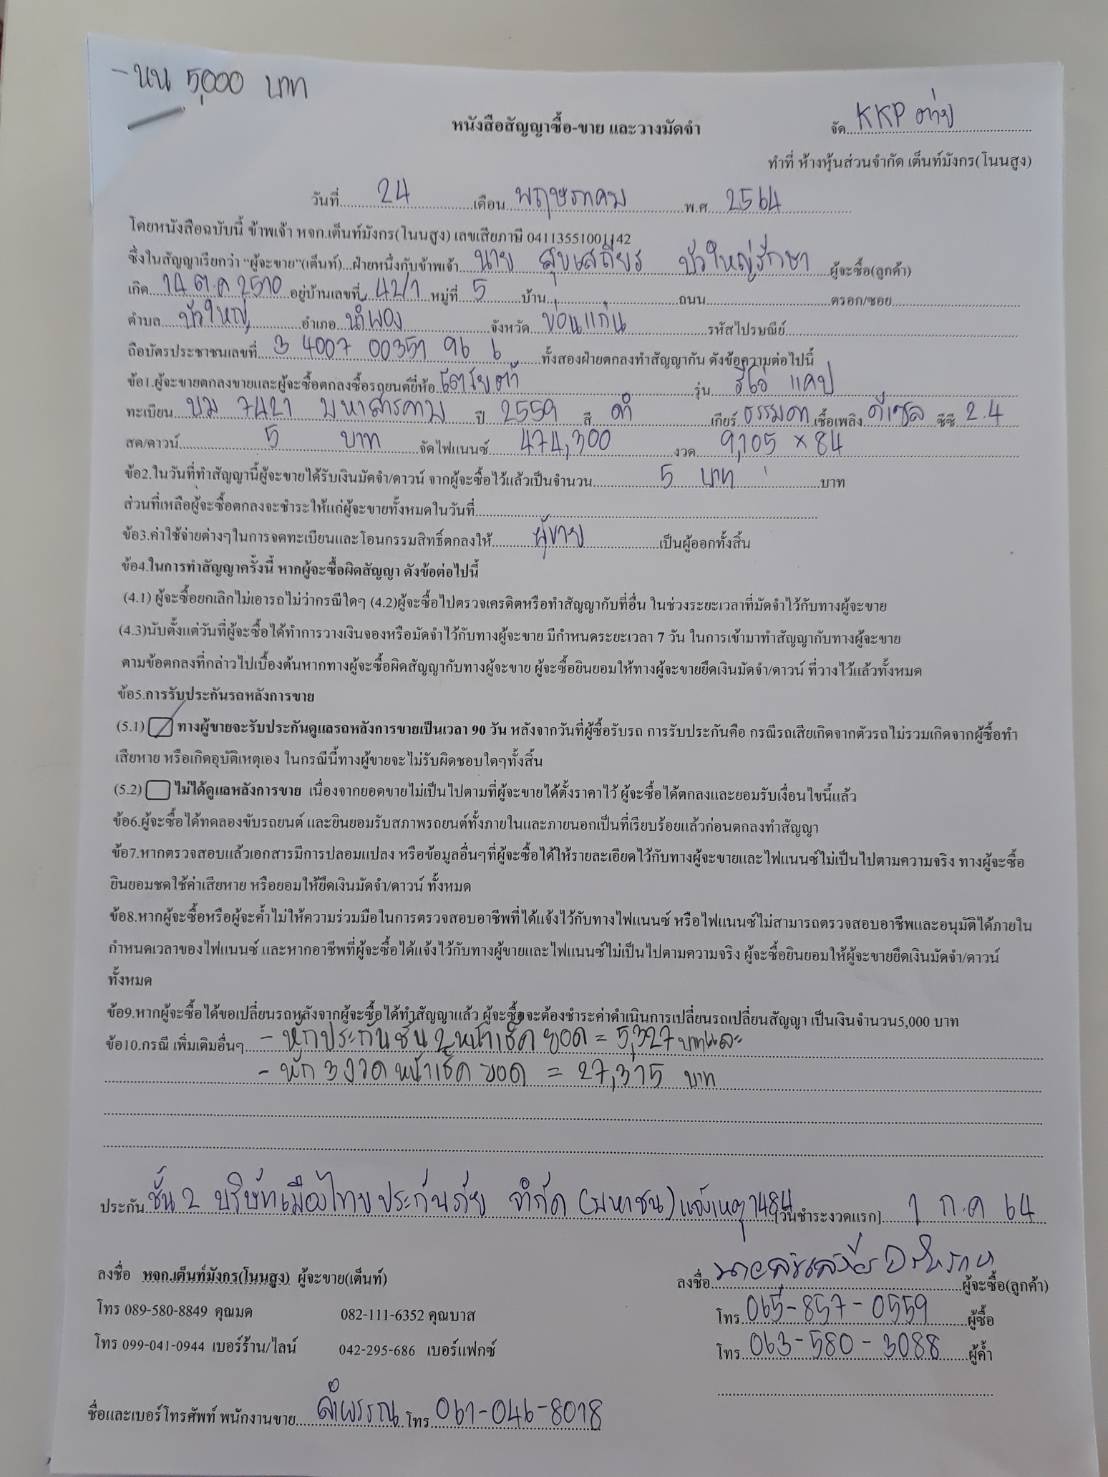 - นน 5,000 บาท
หนังสือสัญญาซื้อ-ขาย และวางมัดจำ
จัด KKP ต่าย
ทำที่ ห้างหุ้นส่วนจำกัด เต็นท์มังกร(โนนสูง)
วันที่ 24 เดือน พฤษภาคม พ.ศ. 2564
โดยหนังสือฉบับนี้ ข้าพเจ้า หจก.เต็นท์มังกร(โนนสูง) เลขเสียภาษี 04113551001142
ซึ่งในสัญญาเรียกว่า "ผู้จะขาย"(เต็นท์)...ฝ่ายหนึ่งกับข้าพเจ้า นาย สุขเสถียร บัวใหญ่รักษา ผู้จะซื้อ(ลูกค้า)
เกิด 14 ต.ค 2510 อยู่บ้านเลขที่ 42/1 หมู่ที่ 5 บ้าน ถนน ตรอก/ซอย
ตำบล บัวใหญ่ อำเภอ น้ำพอง จังหวัด ขอนแก่น รหัสไปรษณีย์
ถือบัตรประชาชนเลขที่ 3 4007 00357 96 6 ทั้งสองฝ่ายตกลงทำสัญญากัน ดังข้อความต่อไปนี้
ข้อ1.ผู้จะขายตกลงขายและผู้จะซื้อตกลงซื้อรถยนต์ยี่ห้อ โตโยต้า รุ่น รีโว่ แคป
ทะเบียน บม 7421 มหาสารคาม ปี 2559 สี ดำ เกียร์ ธรรมดา เชื้อเพลิง ดีเซล ซีซี 2.4
สด/ดาวน์ 5 บาท จัดไฟแนนซ์ 474,300 งวด 9,105 × 84
ข้อ2.ในวันที่ทำสัญญานี้ผู้จะขายได้รับเงินมัดจำ/ดาวน์ จากผู้จะซื้อไว้แล้วเป็นจำนวน 5 บาท บาท
ส่วนที่เหลือผู้จะซื้อตกลงจะชำระให้แก่ผู้จะขายทั้งหมดในวันที่
ข้อ3.ค่าใช้จ่ายต่างๆในการจดทะเบียนและโอนกรรมสิทธิ์ตกลงให้ ผู้ขาย เป็นผู้ออกทั้งสิ้น
ข้อ4.ในการทำสัญญาครั้งนี้ หากผู้จะซื้อผิดสัญญา ดังข้อต่อไปนี้
(4.1) ผู้จะซื้อยกเลิกไม่เอารถไม่ว่ากรณีใดๆ (4.2)ผู้จะซื้อไปตรวจเครดิตหรือทำสัญญากับที่อื่น ในช่วงระยะเวลาที่มัดจำไว้กับทางผู้จะขาย
(4.3)นับตั้งแต่วันที่ผู้จะซื้อได้ทำการวางเงินจองหรือมัดจำไว้กับทางผู้จะขาย มีกำหนดระยะเวลา 7 วัน ในการเข้ามาทำสัญญากับทางผู้จะขาย
ตามข้อตกลงที่กล่าวไปเบื้องต้นหากทางผู้จะซื้อผิดสัญญากับทางผู้จะขาย ผู้จะซื้อยินยอมให้ทางผู้จะขายยึดเงินมัดจำ/ดาวน์ ที่วางไว้แล้วทั้งหมด
ข้อ5.การรับประกันรถหลังการขาย
(5.1) ทางผู้ขายจะรับประกันดูแลรถหลังการขายเป็นเวลา 90 วัน หลังจากวันที่ผู้ซื้อรับรถ การรับประกันคือ กรณีรถเสียเกิดจากตัวรถไม่รวมเกิดจากผู้ซื้อทำ
เสียหาย หรือเกิดอุบัติเหตุเอง ในกรณีนี้ทางผู้ขายจะไม่รับผิดชอบใดๆทั้งสิ้น
(5.2) ไม่ได้ดูแลหลังการขาย เนื่องจากยอดขายไม่เป็นไปตามที่ผู้จะขายได้ตั้งราคาไว้ ผู้จะซื้อได้ตกลงและยอมรับเงื่อนไขนี้แล้ว
ข้อ6.ผู้จะซื้อได้ทดลองขับรถยนต์ และยินยอมรับสภาพรถยนต์ทั้งภายในและภายนอกเป็นที่เรียบร้อยแล้วก่อนตกลงทำสัญญา
ข้อ7.หากตรวจสอบแล้วเอกสารมีการปลอมแปลง หรือข้อมูลอื่นๆที่ผู้จะซื้อได้ให้รายละเอียดไว้กับทางผู้จะขายและไฟแนนซ์ไม่เป็นไปตามความจริง ทางผู้จะซื้อ
ยินยอมชดใช้ค่าเสียหาย หรือยอมให้ยึดเงินมัดจำ/ดาวน์ ทั้งหมด
ข้อ8.หากผู้จะซื้อหรือผู้จะค้ำไม่ให้ความร่วมมือในการตรวจสอบอาชีพที่ได้แจ้งไว้กับทางไฟแนนซ์ หรือไฟแนนซ์ไม่สามารถตรวจสอบอาชีพและอนุมัติได้ภายใน
กำหนดเวลาของไฟแนนซ์ และหากอาชีพที่ผู้จะซื้อได้แจ้งไว้กับทางผู้ขายและไฟแนนซ์ไม่เป็นไปตามความจริง ผู้จะซื้อยินยอมให้ผู้จะขายยึดเงินมัดจำ/ดาวน์
ทั้งหมด
ข้อ9.หากผู้จะซื้อได้ขอเปลี่ยนรถหลังจากผู้จะซื้อได้ทำสัญญาแล้ว ผู้จะซื้อจะต้องชำระค่าดำเนินการเปลี่ยนรถเปลี่ยนสัญญา เป็นเงินจำนวน5,000 บาท
ข้อ10.กรณี เพิ่มเติมอื่นๆ - หักประกันชั้น 2 หน้าเช็ค ยอด = 5,327 บาทและ
- หัก 3 งวด หน้าเช็ค ยอด = 27,315 บาท
ประกัน ชั้น 2 บริษัทเมืองไทยประกันภัย จำกัด (มหาชน) แจ้งเหตุ 1484 [วันชำระงวดแรก] 1 ก.ค 64
ลงชื่อ หจก.เต็นท์มังกร(โนนสูง) ผู้จะขาย(เต็นท์)
ลงชื่อ ผู้จะซื้อ(ลูกค้า)
โทร 089-580-8849 คุณมด 082-111-6352 คุณบาส
โทร 065-857-0559 ผู้ซื้อ
โทร 099-041-0944 เบอร์ร้าน/ไลน์ 042-295-686 เบอร์แฟกซ์
โทร 063-580-3088 ผู้ค้ำ
ชื่อและเบอร์โทรศัพท์ พนักงานขาย ลำพรรณ โทร 061-046-8018